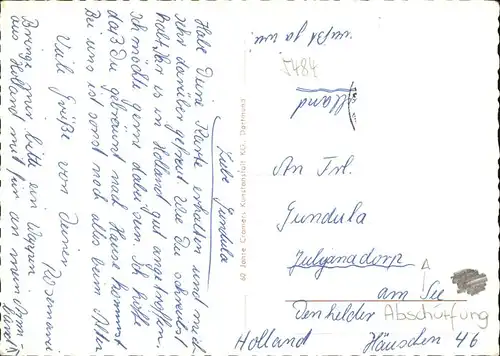 Liebe Gundula
Habe Deine Karte erhalten und mich
sehr darüber gefreut. Wie Du schreibst
hat Ihr es in Holland gut angetroffen,
ich möchte gern dabei sein. Ich hoffe
daß Du gebräunt nach Hause kommst
Bei uns ist sonst noch alles beim Alten
Viele Grüße von Deiner
Rosemarie
Bringe mir bitte ein Wappen
aus Holland mit für an mein
60 Jahre Cramers Kunstanstalt KG. Dortmund
5484
Holland
An Frl.
Gundula
Julianadorp
am See
Denhelder
Abschürfung
Holland
Häuschen 46